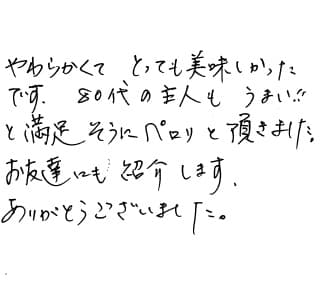 やわらかくて とっても美味しかった
です. 80代の主人も うまい!!
と満足そうにペロリと頂きました。
お友達にも紹介します.
ありがとうございました。